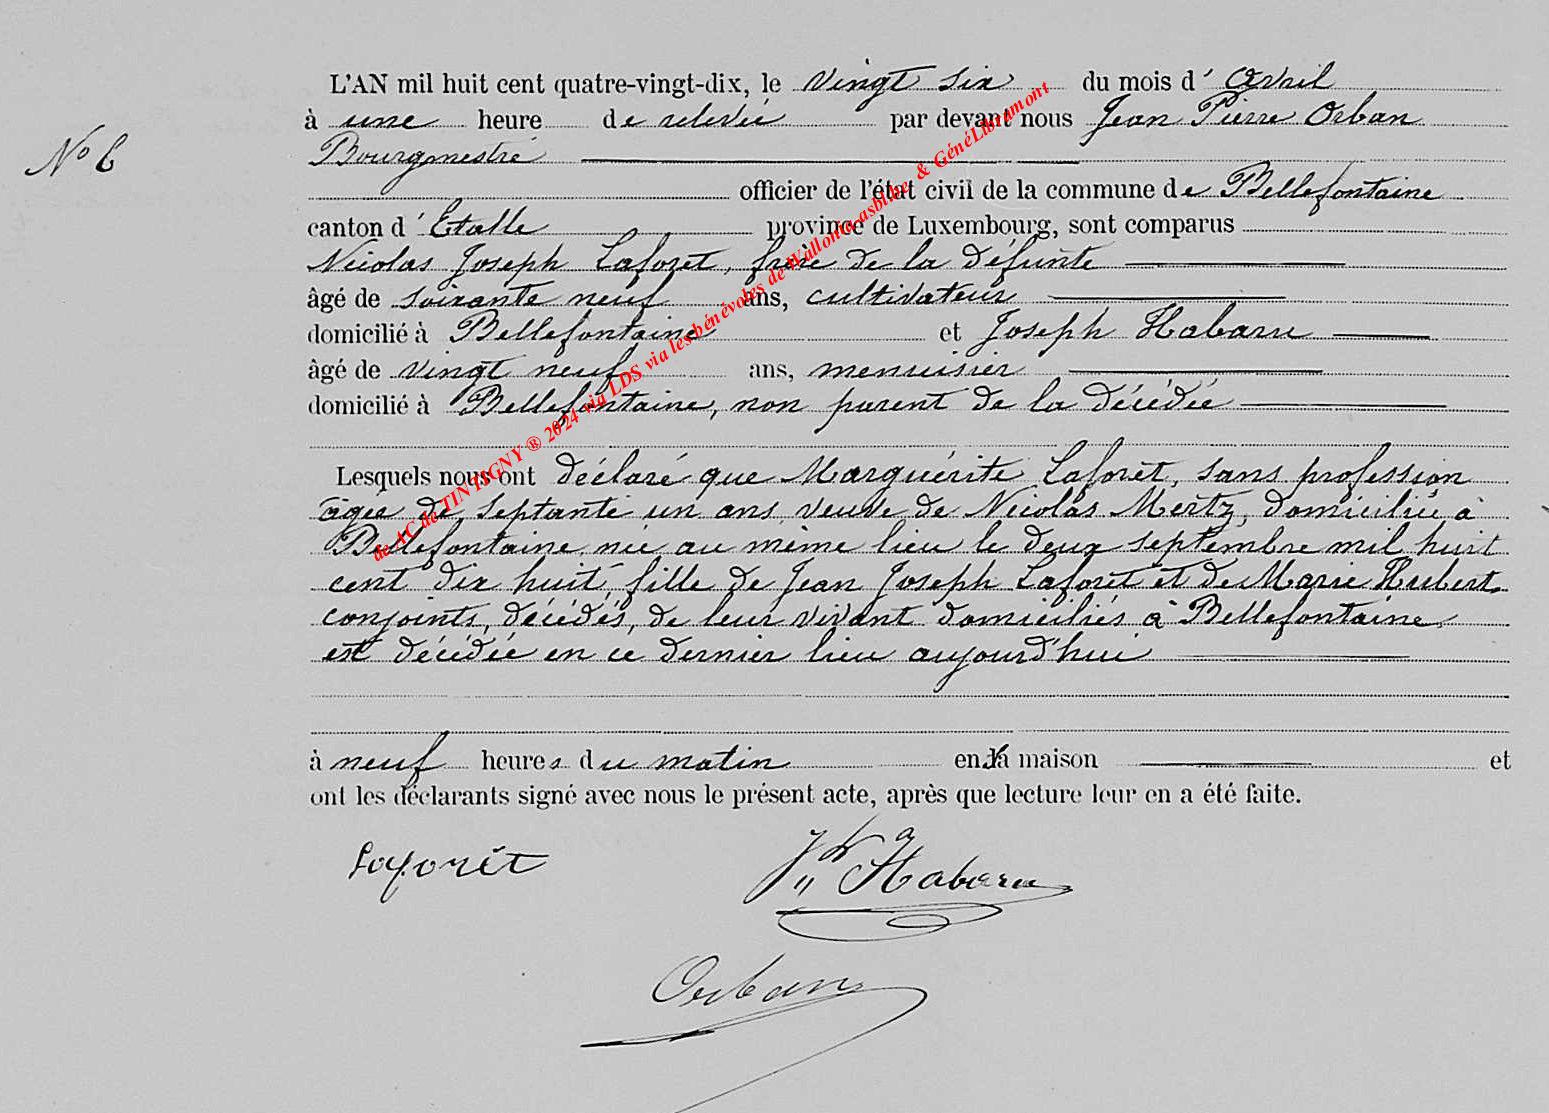 L'AN mil huit cent quatre-vingt-dix, le vingt six du mois d' Avril
à une heure de relevée par devant nous Jean Pierre Orban
N° 6
Bourgmestre
officier de l'état civil de la commune de Bellefontaine
canton d' Etalle province de Luxembourg, sont comparus
Nicolas Joseph Laforêt, frère de la défunte
âgé de soixante neuf ans, cultivateur
domicilié à Bellefontaine et Joseph Habaru
âgé de vingt neuf ans, menuisier
domicilié à Bellefontaine, non parent de la décédée
Lesquels nous ont déclaré que Marguérite Laforêt, sans profession
âgée de septante un ans, veuve de Nicolas Mertz, domiciliée à
Bellefontaine, née au même lieu le deux septembre mil huit
cent dix huit, fille de Jean Joseph Laforêt et de Marie Hubert,
conjoints, décédés, de leur vivant domiciliés à Bellefontaine,
est décédée en ce dernier lieu aujourd'hui
à neuf heures du matin en sa maison et
ont les déclarants signé avec nous le présent acte, après que lecture leur en a été faite.
Laforêt
Habaru
Orban
de AC de TINTIGNY ® 2024 via LDS via les bénévoles de Wallonia asbl.be & GénéLibramont